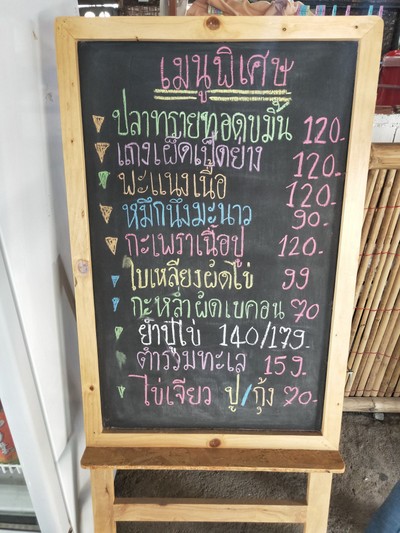 เมนูพิเศษ
ปลาทรายทอดขมิ้น 120.-
แกงเผ็ดเป็ดย่าง 120.-
พะแนงเนื้อ 120.-
หมึกนึ่งมะนาว 90.-
กะเพราเนื้อปู 120.-
ใบเหลียงผัดไข่ 99
กะหล่ำผัดเบคอน 70
ยำปูไข่ 140/179.
ตำรวมทะเล 159.
ไข่เจียว ปู/กุ้ง 70.-